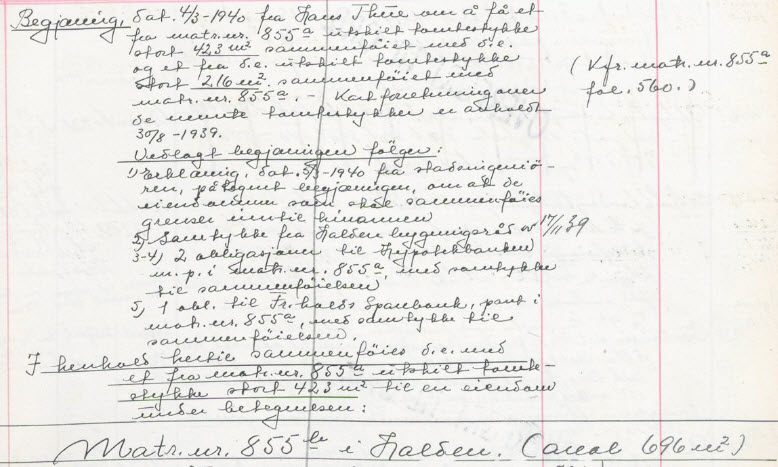 Begjæring, dat. 4/3-1940 fra Hans Thüe om å få et
fra matr.nr. 855ª utskilt tomtestykke
stort 423 m² sammenföiet med d.e.
og et fra d.e. utskilt tomtestykke
stort 216 m² sammenföiet med
matr.nr. 855ª. - Kartforretning over
de nevnte tomtestykker er avholdt
30/8-1939.
(Kfr. matr.nr. 855ª
fol. 560.)
Vedlagt begjæringen fölger:
1) Erklæring, dat. 5/3-1940 fra stadsingeniö-
ren, påtegnet begjæringen, om at de
eiendommer som skal sammenföies
grenser inntil hinannen
2) Samtykke fra Halden bygningsråd av 17/11 39
3-4) 2 obligasjoner til Hypotekbanken
m.p. i matr.nr. 855ª, med samtykke
til sammenföielsen
5) 1 obl. til Fr.halds Sparebank, pant i
matr.nr. 855ª, med samtykke til
sammenföielsen.
I henhold hertil sammenföies d.e. med
et fra matr.nr. 855ª utskilt tomte-
stykke stort 423 m² til en eiendom
under betegnelsen:
Matr.nr. 855 i Halden. (Areal 696 m²)